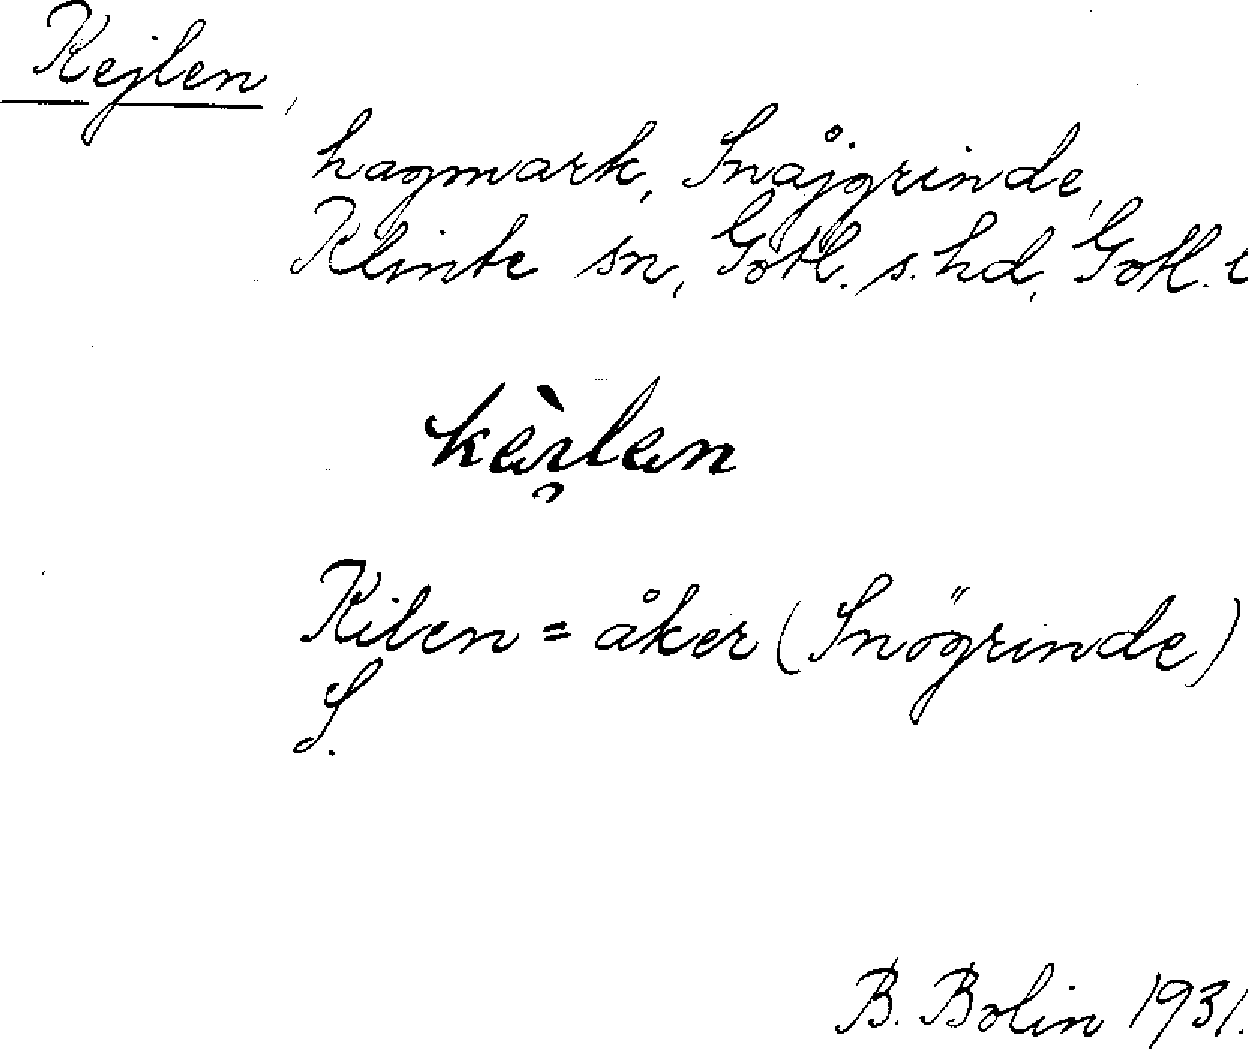 Kejlen,
hagmark, Snåjgrinde,
Klinte sn, Gotl. s. hd, Gotl. l
Kilen = åker (Snögrinde)
S.
B. Bolin 1931.